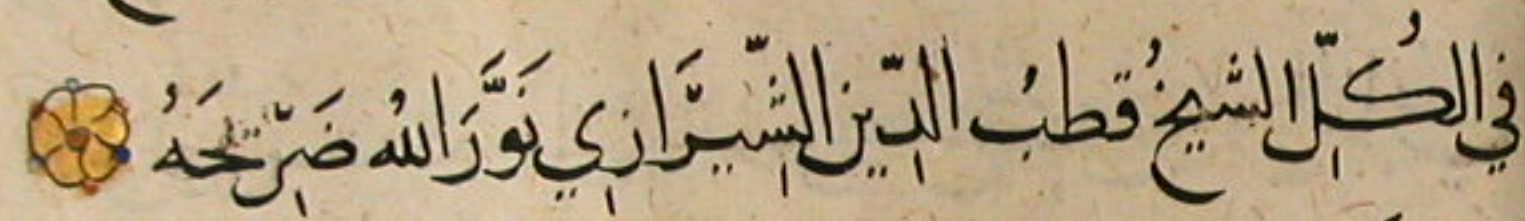 في الكُلِّ الشيخُ قطبُ الدّين الشِّيرَازِي نَوَّرَ الله ضَرِيحَهُ